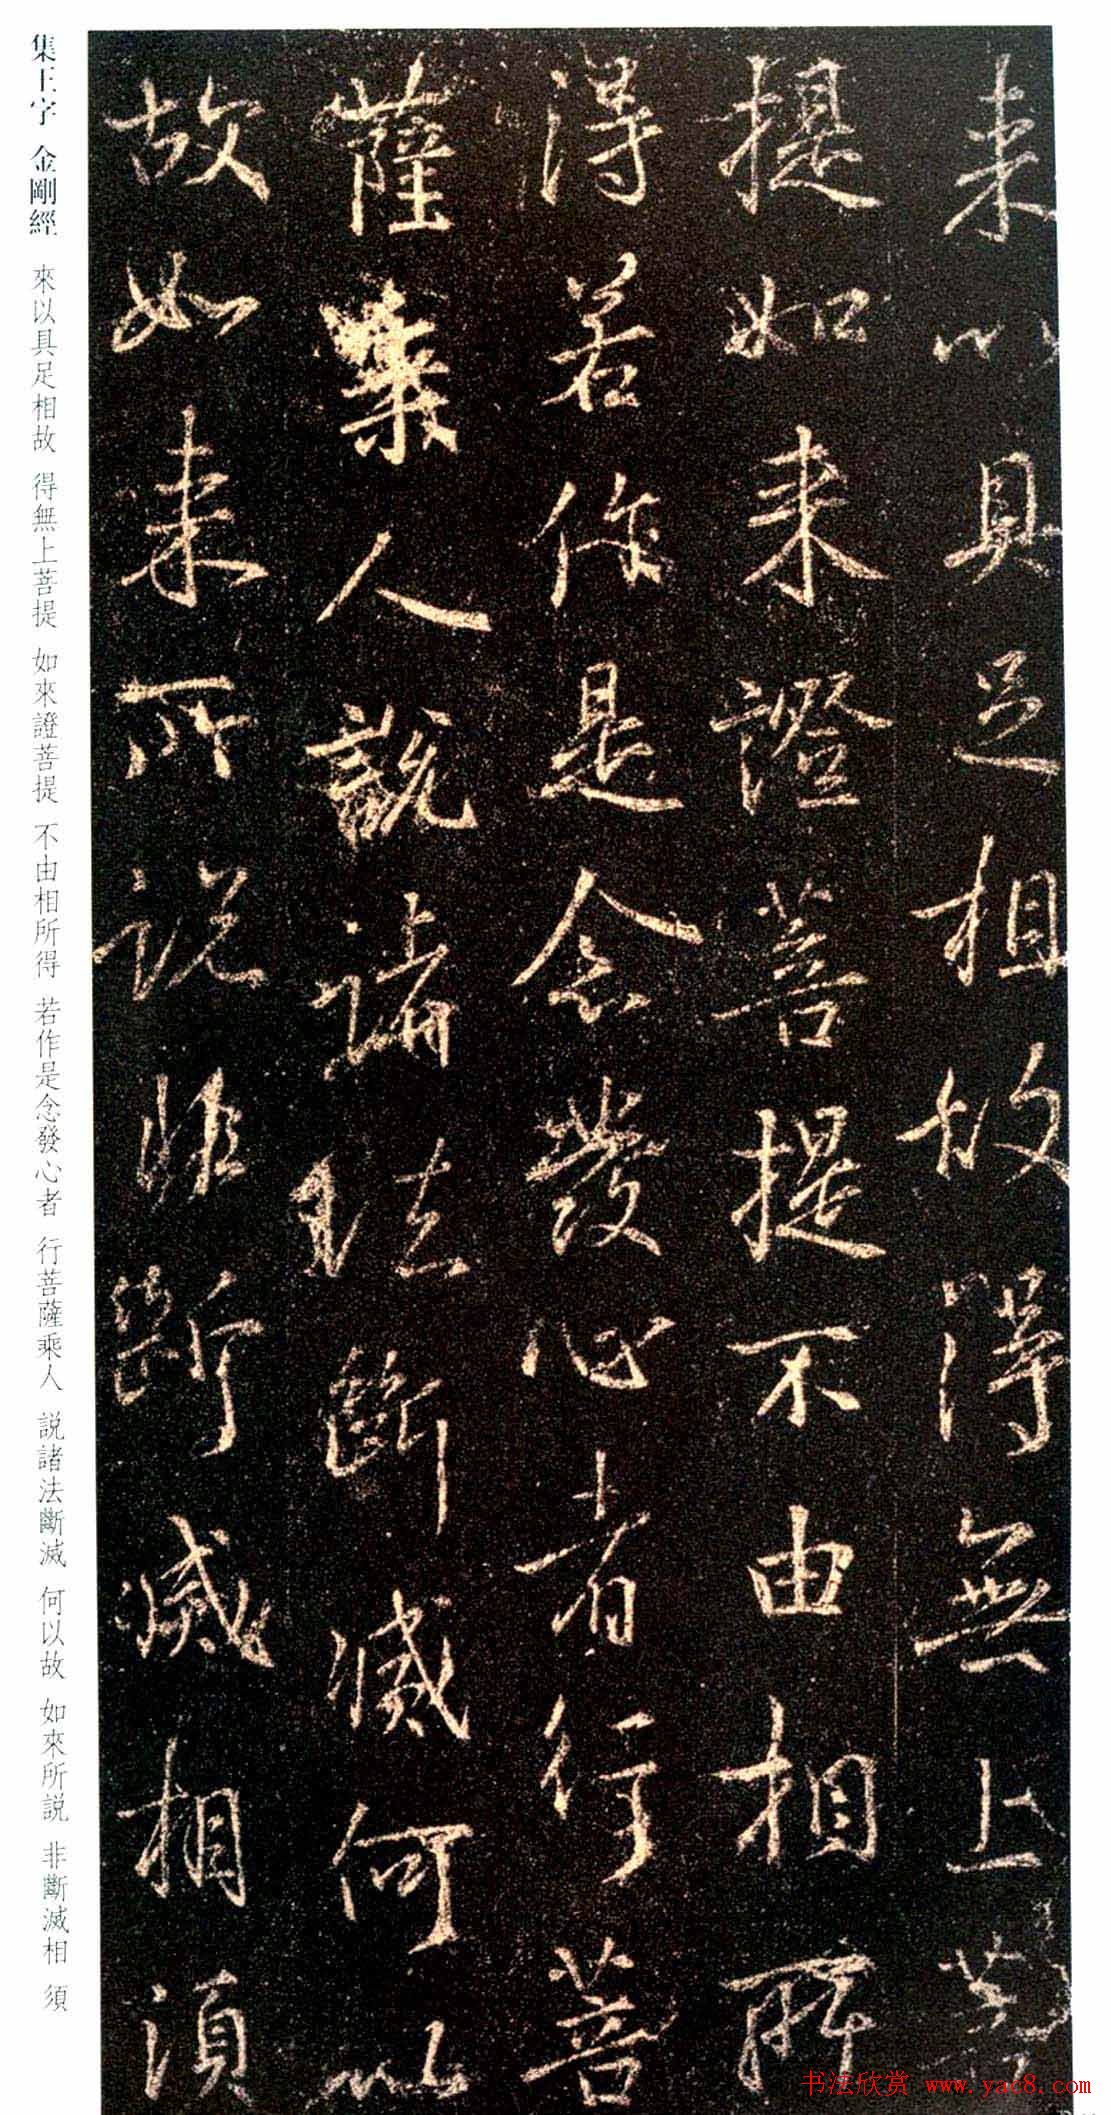 来以具足相故得無上菩
提如来證菩提不由相所
得若作是念發心者行菩
薩乘人說諸法斷滅何以
故如来所說非斷滅相須
集王字 金剛經 來以具足相故 得無上菩提 如來證菩提 不由相所得 若作是念發心者 行菩薩乘人 説諸法斷滅 何以故 如來所説 非斷滅相 須
书法欣赏 www.yac8.com